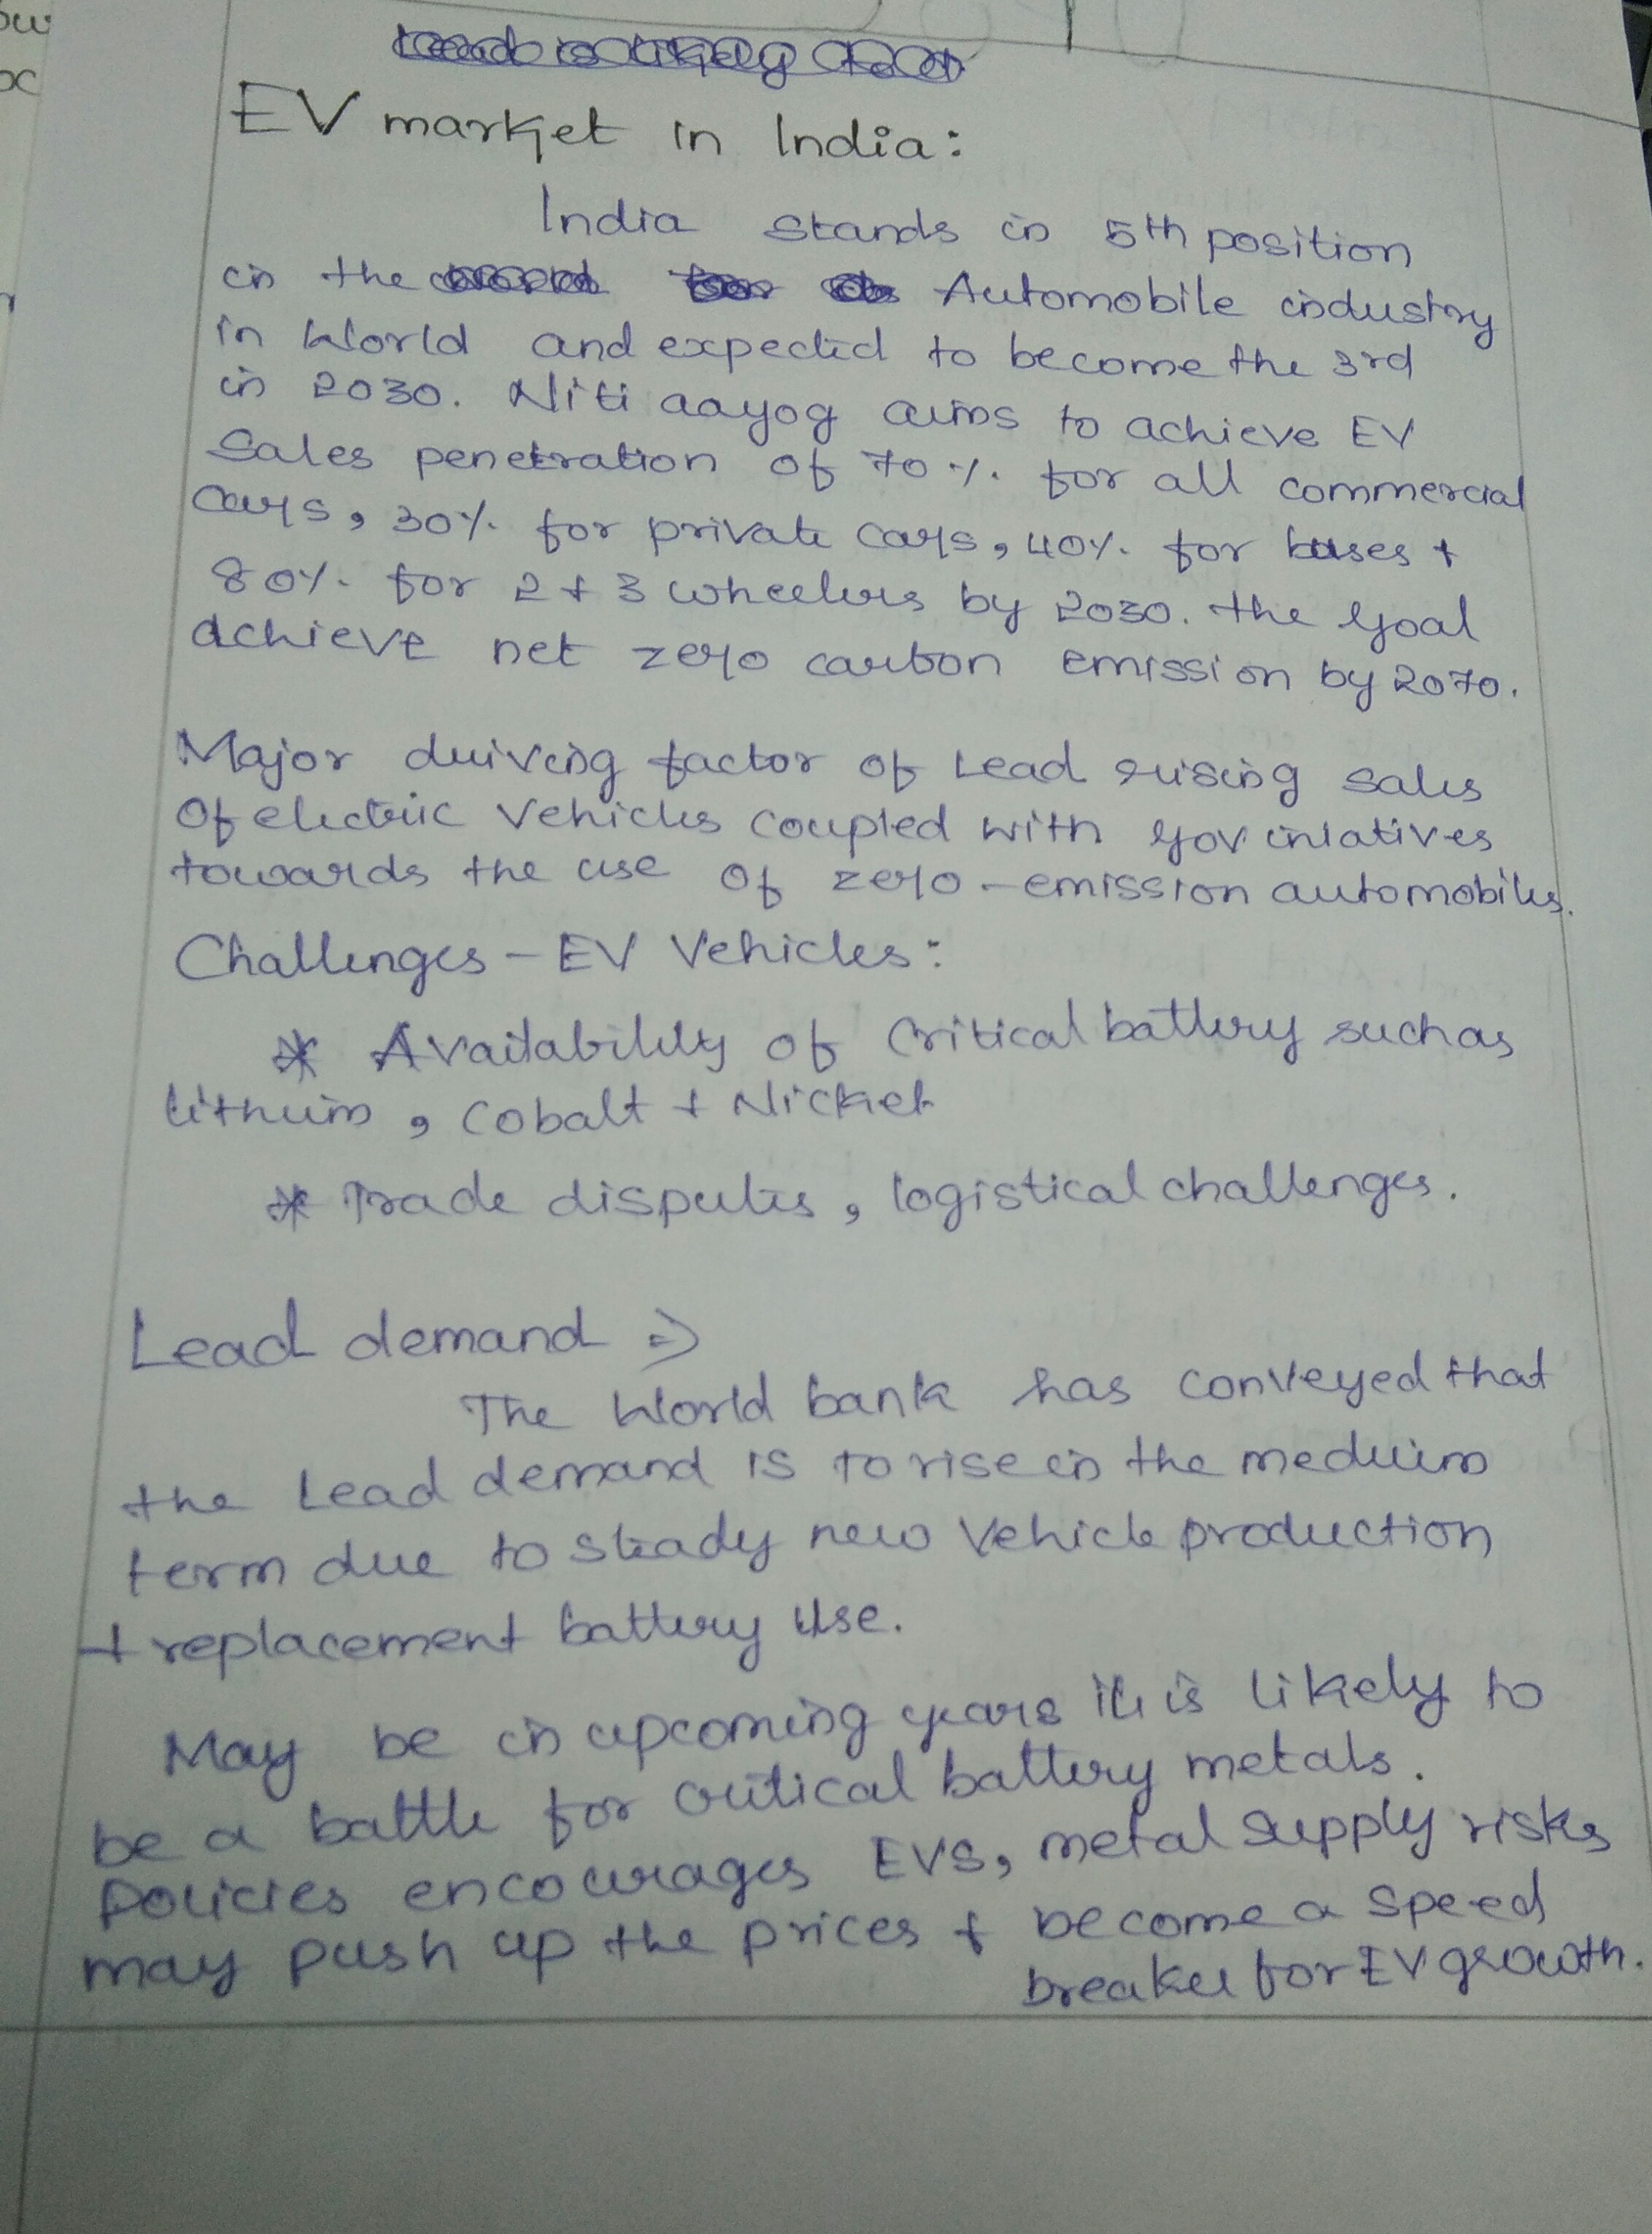 EV market in India:
India stands in 5th position
in the Automobile industry
in World and expected to become the 3rd
in 2030. Niti aayog aims to achieve EV
Sales penetration of 70%. for all commercial
Cars, 30%. for private cars, 40%. for buses +
80%. for 2 + 3 wheelers by 2030. the goal
achieve net zero carbon emission by 2070.
Major driving factor of Lead rising sales
Of electric Vehicles coupled with gov iniatives
towards the use of zero-emission automobiles.
Challenges - EV Vehicles:
* Availability of Critical battery such as
lithium, Cobalt + Nickel
* Trade disputes, logistical challenges.
Lead demand ⇒
The World bank has conveyed that
the Lead demand is to rise in the medium
term due to steady new Vehicle production
+ replacement battery use.
May be in upcoming years it is likely to
be a battle for critical battery metals.
Policies encourages EVS, metal supply risks
may push up the prices + become a speed
breaker for EV growth.